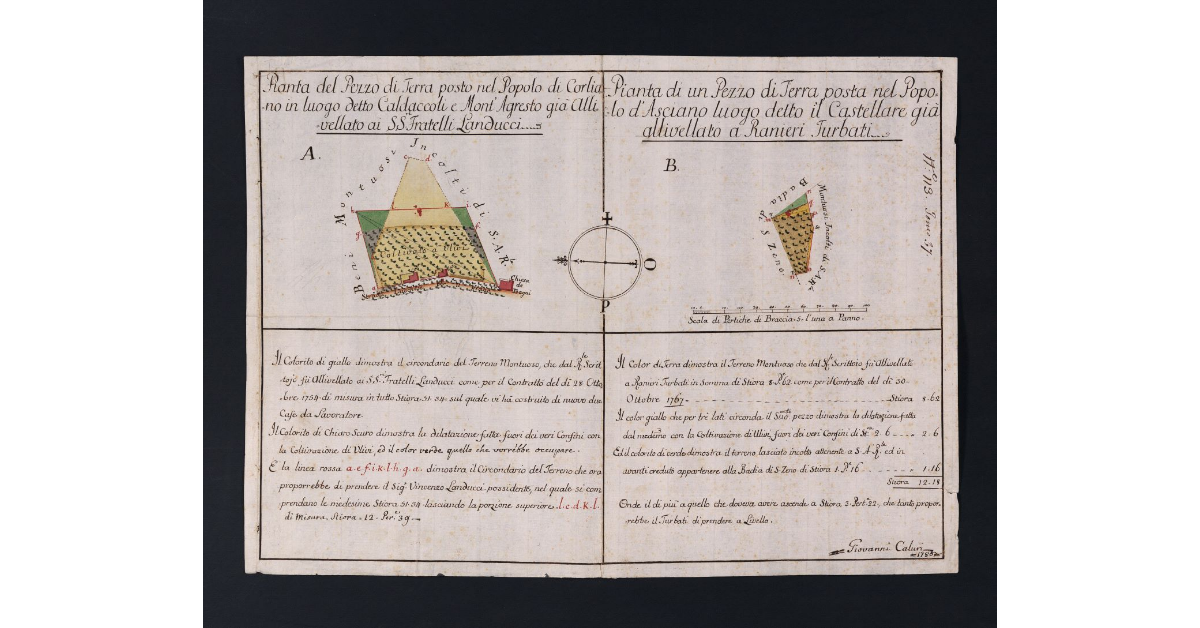 Pianta del Pezzo di Terra posto nel Popolo di Corlia
no in luogo detto Caldaccoli e Mont'Agresto già Alli
vellato ai SS.ri Fratelli Landucci
A.
Beni Montuosi Incolti di S.A.R.le
Coltivato a Ulivi
Chiesa de Bagni
Pianta di un Pezzo di Terra posta nel Popo
lo d'Asciano luogo detto il Castellare già
allivellato a Ranieri Turbati
B.
Badia di S. Zeno
Montuosi Incolti di S.A.R.le
Scala di Pertiche di Braccia 5: l'una a Panno.
O
P
N.o 113. Tomo 37
Il Colorito di giallo dimostra il circondario del Terreno Montuoso, che dal R.le Scrit
tojo fù Allivellato ai SS.ri Fratelli Landucci come per il Contratto del dì 28 Otto
bre 1754 di misura in tutto Stiora 31. 34. sul quale vi hà costruito di nuovo due
Case da Lavoratore.
Il Colorito di Chiaro Scuro dimostra la dilatazione fatta fuori dei veri Confini con
la Coltivazione di Vlivi, ed il color verde quello che vorrebbe occupare.
E la linea rossa a.e.f.i.k.l.h.g.a. dimostra il Circondario del Terreno che ora
proporrebbe di prendere il Sig.e Vincenzo Landucci possidente, nel quale si com
prendano le medesime Stiora 31. 34. lasciando la porzione superiore l.c.d.k.l.
di Misura Stiora 12 Per.e 39.
Il Color di Terra dimostra il Terreno Montuoso che dal R.le Scrittoio fù Allivellato
a Ranieri Turbati in Somma di Stiora 8 P.e 62 come per il Contratto del dì 30
Ottobre 1767 Stiora 8.62
Il color giallo che per trè lati circonda il Sud.to pezzo dimostra la dilatazione fatta
dal medesimo con la Coltivazione di Ulivi, fuori dei veri Confini di St.ra 2. 6 2.6
Ed il colorito di verde dimostra il terreno, lasciato incolto attenente a S.A.R.le ed in
avanti creduto appartenere alla Badia di S. Zeno di Stiora 1. P.e 16 1.16
Stiora 12.18
Onde il di più a quello che doveva avere ascende a Stiora 3. Pert.e 22, che tanto propor
rebbe il Turbati di prendere a Livello.
Giovanni Caluri
1786